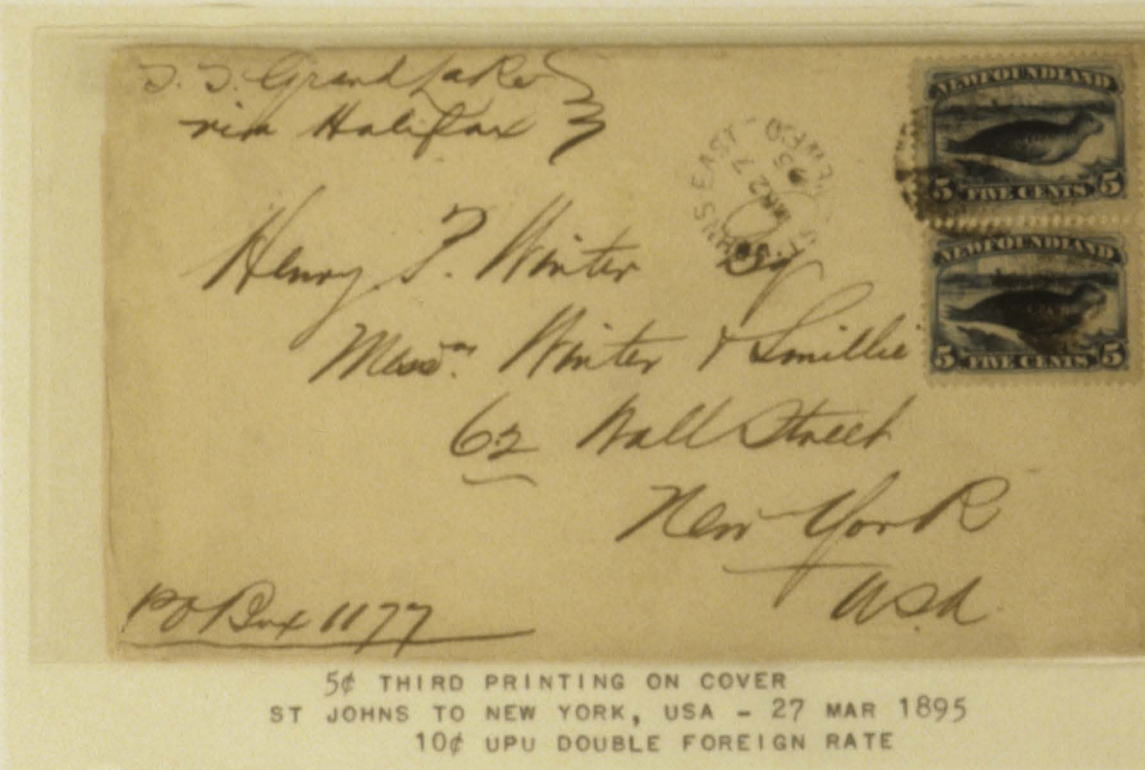 S. S. Grand Lake
via Halifax
NEWFOUNDLAND
5 FIVE CENTS 5
NEWFOUNDLAND
5 FIVE CENTS 5
ST. JOHNS EAST
MR 27
95
Henry T. Winter Esq
Messrs. Winter & Smillie
62 Wall Street
New York
U.S.A.
PO Box 1177
5¢ THIRD PRINTING ON COVER
ST JOHNS TO NEW YORK, USA – 27 MAR 1895
10¢ UPU DOUBLE FOREIGN RATE